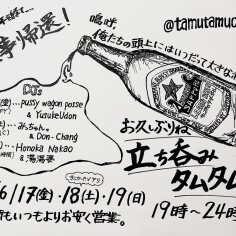 帰還！
@tamutamuo
嗚呼、
俺たちの頭上にはいつだって大きな
DJs
(金)… pussy wagon posse
& YusukeUdon
(土)… みっちゃん。
& Don-Chang
(日)… Honoka Nakao
& 湯湯婆
お久しぶりね
立ち呑み
タムタム
6/17(金)・18(土)・19(日)
もいつもよりお安く営業。
19時〜24時